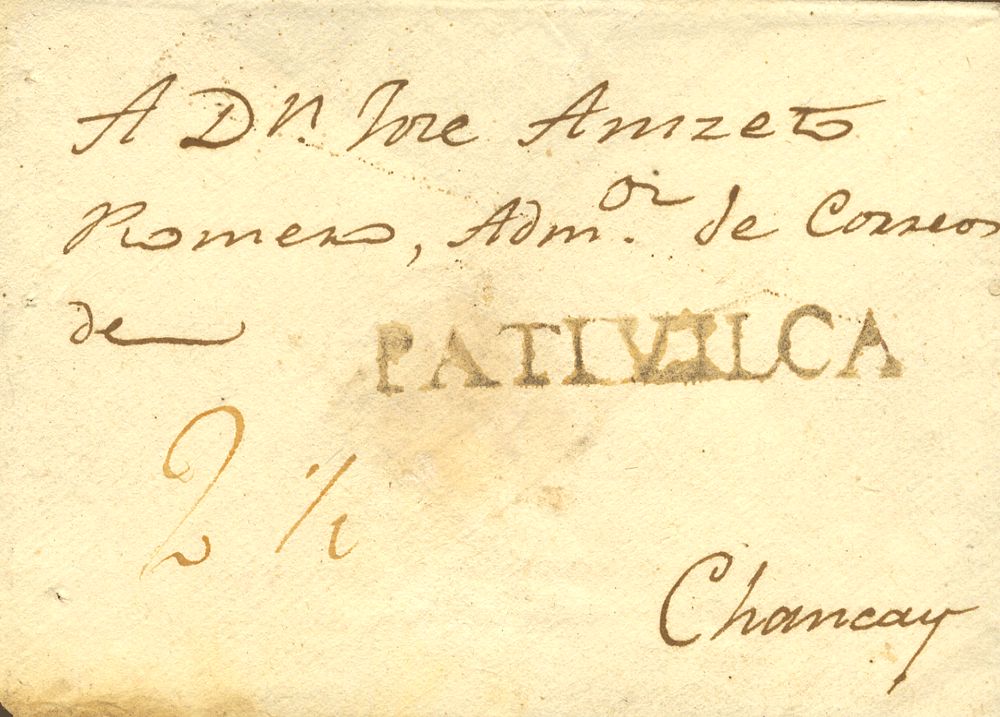 A Dn. Jose Anizeto
Romero, Adm.or de Correos
de
PATIVILCA
2 1/2
Chancay